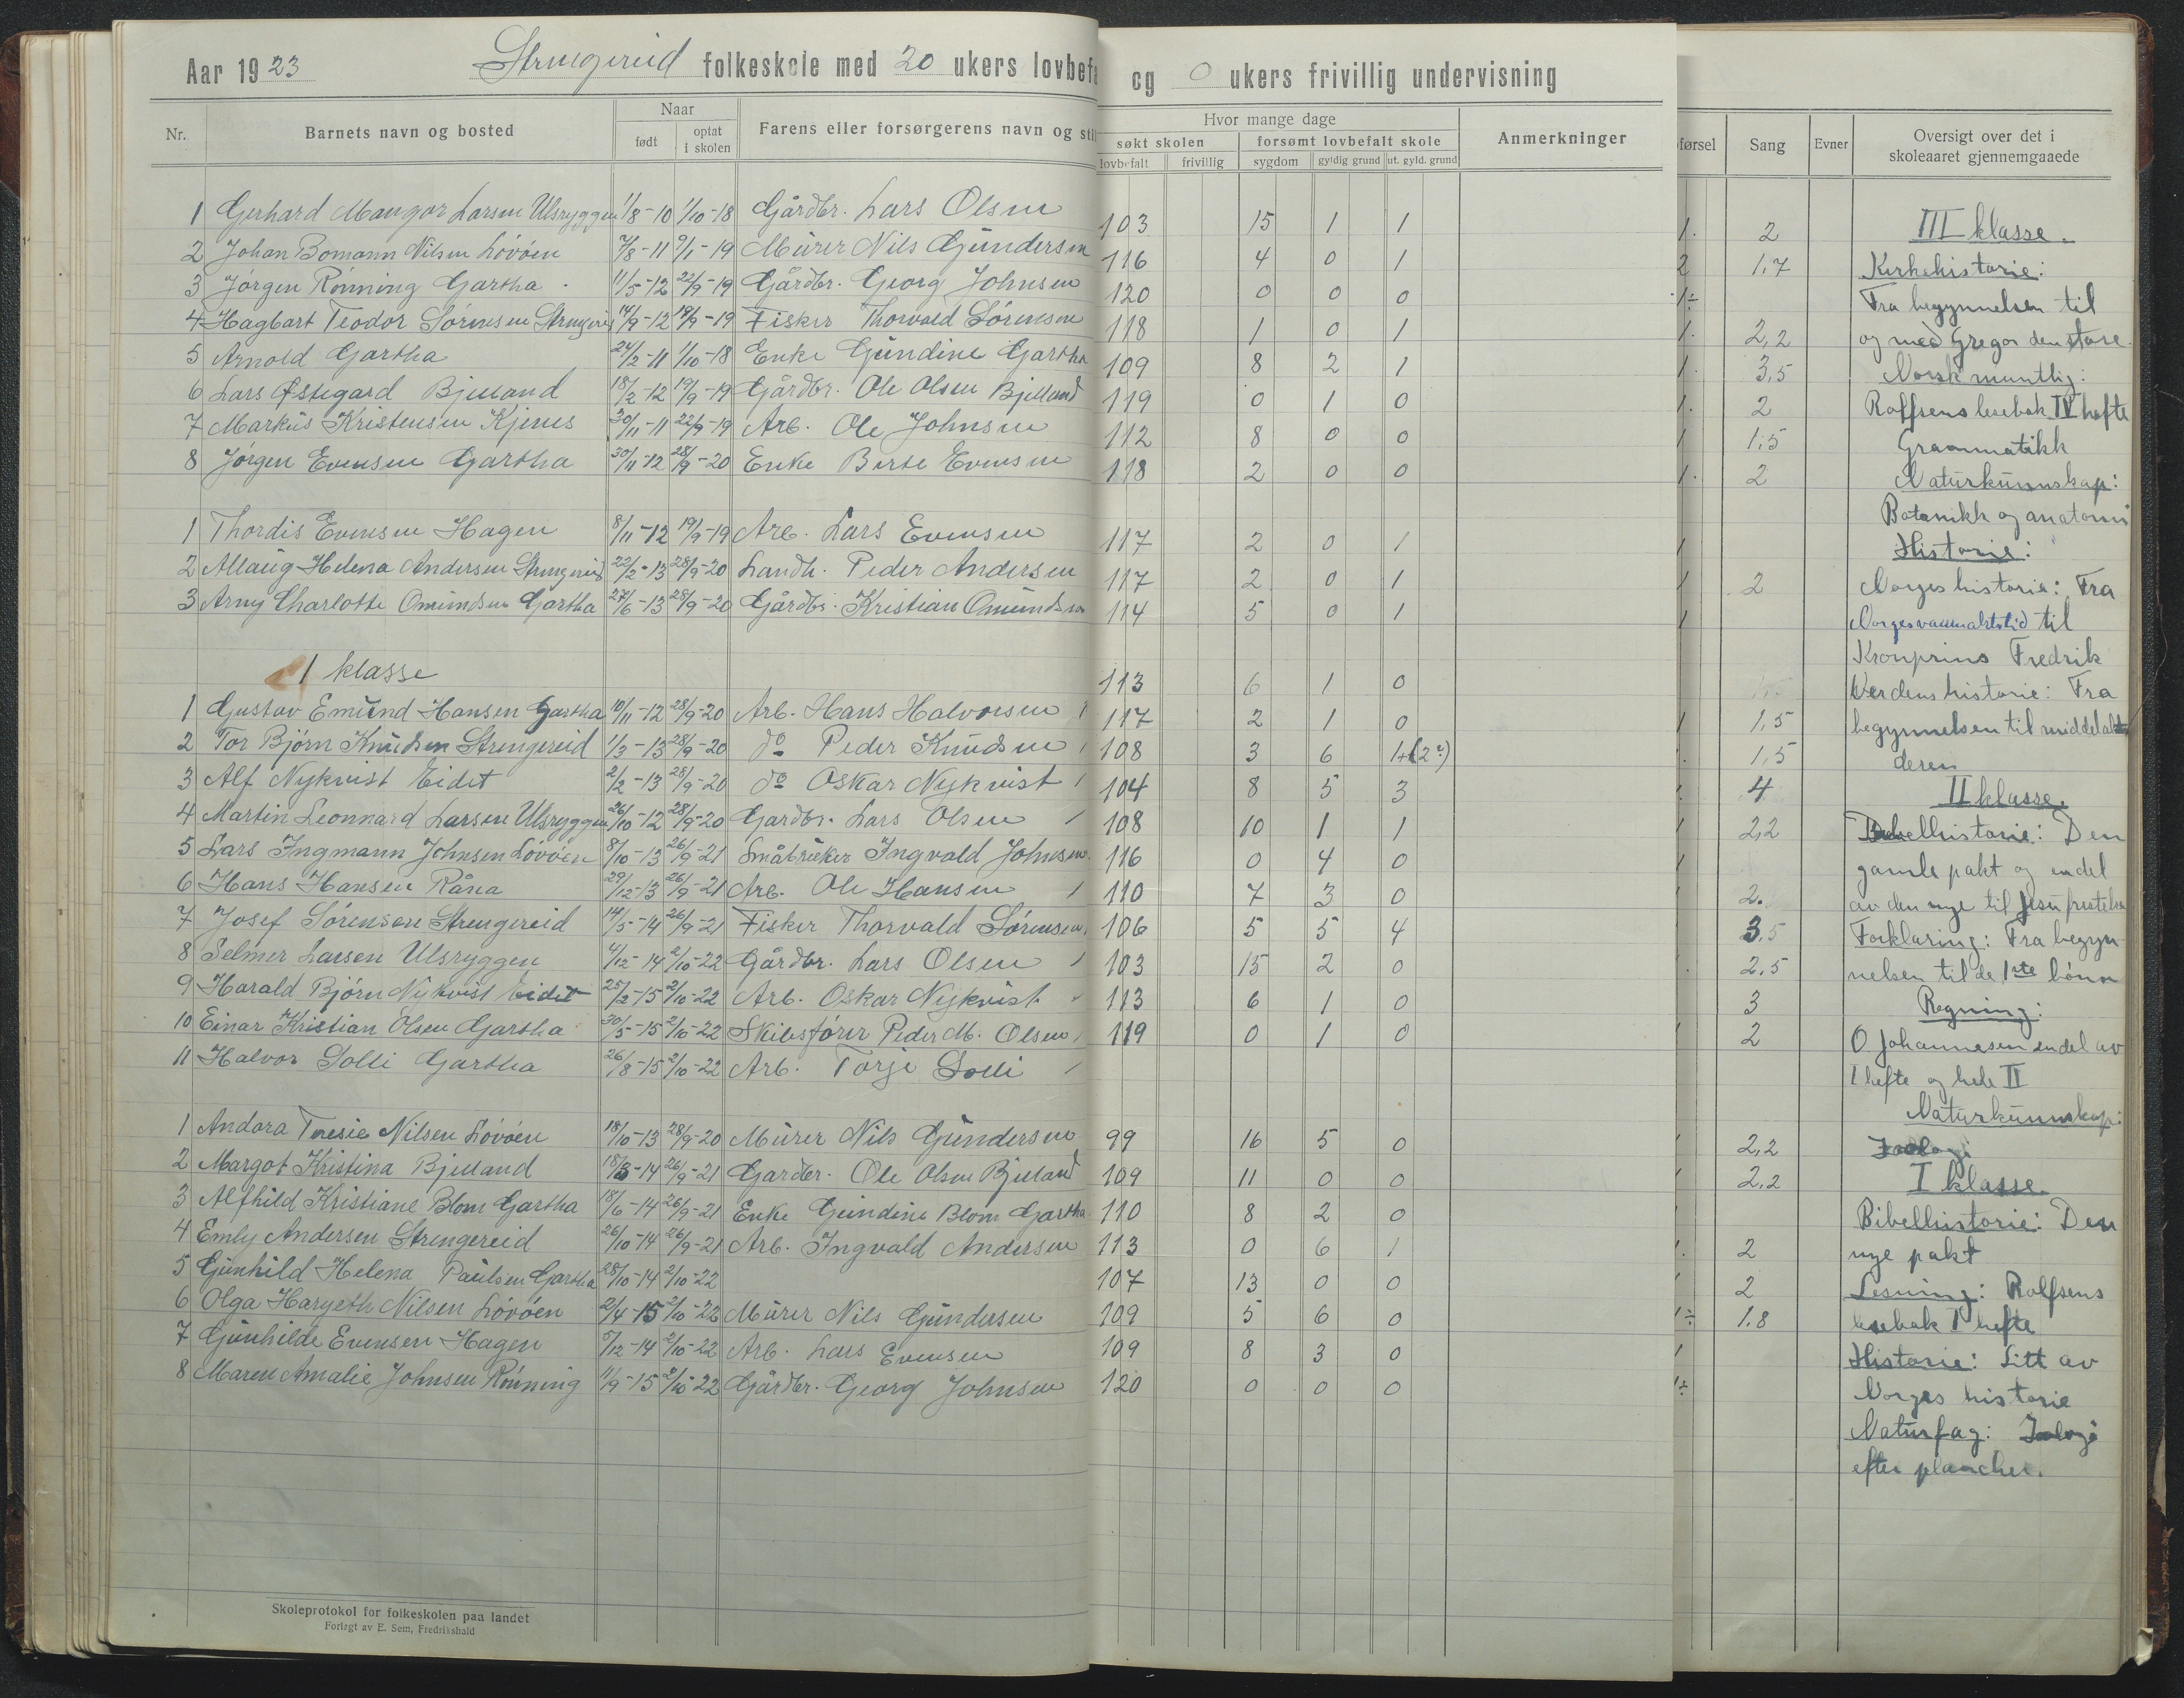 Aar 1923 Strengereid folkeskole med 20 ukers lovbefa og 0 ukers frivillig undervisning
Nr. Barnets navn og bosted Naar født optat i skolen Farens eller forsørgerens navn og sti
Hvor mange dage
søkt skolen forsømt lovbefalt skole
lovbefalt frivillig sygdom gyldig grund ut. gyld. grund
Anmerkninger
førsel Sang Evner Oversigt over det i skoleaaret gjennemgaaede
1 Gerhard Mangor Larsen Ulsryggen 1/8-10 1/10-18 Gårdbr. Lars Olsen 103 15 1 1
2 Johan Bomann Nilsen Lövöen 7/8-11 9/1-19 Mürer Nils Gündersen 116 4 0 1
3 Jörgen Rönning Gartha 11/5-12 22/9-19 Gårdbr. Georg Johnsen 120 0 0 0
4 Hagbart Teodor Sörensen Strengereid 14/9-12 19/9-19 Fisker Thorvald Sörensen 118 1 0 1
5 Arnold Gartha 24/2-11 1/10-18 Enke Gündine Gartha 109 8 2 1
6 Lars Østegard Bjelland 18/2-12 19/9-19 Gårdbr. Ole Olsen Bjelland 119 0 1 0
7 Markus Kristensen Kjenes 30/11-11 22/9-19 Arb. Ole Johnsen 112 8 0 0
8 Jörgen Evensen Gartha 30/11-12 28/9-20 Enke Berte Evensen 118 2 0 0
1 Thordis Evensen Hagen 8/11-12 19/9-19 Arb. Lars Evensen 117 2 0 1
2 Allaug Helena Andersen Strengereid 22/2-13 28/9-20 Landh. Peder Andersen 117 2 0 1
3 Arny Charlotte Omundsen Gartha 27/6-13 28/9-20 Gårdbr. Kristian Omundsen 114 5 0 1
1 klasse
1 Gustav Emund Hansen Gartha 10/11-12 28/9-20 Arb. Hans Halvorsen 113 6 1 0
2 Tor Björn Knudsen Strengereid 1/3-13 28/9-20 do Peder Knudsen 117 2 1 0
3 Alf Nykvist Eidet 2/2-13 28/9-20 do Oskar Nykvist 108 3 6 1+(2?)
4 Martin Leonnard Larsen Ulsryggen 26/10-12 28/9-20 Gardbr. Lars Olsen 104 8 5 3
5 Lars Ingmann Johnsen Lövöen 8/10-13 26/9-21 Småbruker Ingvald Johnsen 108 10 1 1
6 Hans Hansen Råna 29/12-13 26/9-21 Arb. Ole Hansen 116 0 4 0
7 Josef Sörensen Strengereid 14/5-14 26/9-21 Fisker Thorvald Sörensen 110 7 3 0
8 Selmer Larsen Ulsryggen 4/12-14 2/10-22 Gårdbr. Lars Olsen 106 5 5 4
9 Harald Björn Nykvist Eidet 25/2-15 2/10-22 Arb. Oskar Nykvist 103 15 2 0
10 Einar Kristian Olsen Gartha 30/5-15 2/10-22 Skibsförer Peder M. Olsen 113 6 1 0
11 Halvor Solli Gartha 26/8-15 2/10-22 Arb. Torje Solli 119 0 1 0
1 Andora Teresie Nilsen Lövöen 18/10-13 28/9-20 Mürer Nils Gündersen 99 16 5 0
2 Margot Kristina Bjelland 18/3-14 26/9-21 Gardbr. Ole Olsen Bjelland 109 11 0 0
3 Alfhild Kristiane Blom Gartha 18/6-14 26/9-21 Enke Gündine Blom Gartha 110 8 2 0
4 Emly Andersen Strengereid 26/10-14 26/9-21 Arb. Ingvald Andersen 113 0 6 1
5 Gunhild Helena Paulsen Gartha 28/10-14 2/10-22 107 13 0 0
6 Olga Hargeth Nilsen Lövöen 2/4-15 2/10-22 Mürer Nils Gündersen 109 5 6 0
7 Gunhilde Evensen Hagen 5/12-14 2/10-22 Arb. Lars Evensen 109 8 3 0
8 Maren Amalie Johnsen Rönning 11/9-15 2/10-22 Gårdbr. Georg Johnsen 120 0 0 0
Skoleprotokol for folkeskolen paa landet
Forlagt av E. Sem, Fredrikshald
1. 2
2 1,7
1÷
1. 2,2
1. 3,5
1. 2
1 1,5
1. 2
1
1 2
1
1 1,5
1,5
4
1 2,2
1
2.
3,5
2,5
3
2
2,2
2,2
1. 2
2
1÷ 1.8
1
1÷
III klasse.
Kirkehistorie:
Fra begynnelsen til
og med Gregor den store.
Norsk muntlig:
Rolfsens lesebok IV hefte
Grammatikk
Naturkunnskap:
Botanikk og anatomi
Historie:
Norges historie: Fra
Norges vanmaktstid til
Kronprins Fredrik
Verdens historie: Fra
begynnelsen til middelal
deren
II klasse.
Bibelhistorie: Den
gamle pakt og endel
av den nye til Jesu fristelse
Forklaring: Fra begyn
nelsen til de 1ste bönn
Regning:
O. Johannesen endel av
I hefte og hele II
Naturkunnskap:
Zoologi
I klasse.
Bibelhistorie: Den
nye pakt
Lesning: Rolfsens
lesebok I hefte
Historie: Litt av
Norges historie
Naturfag: Zoologi
efter plancher.